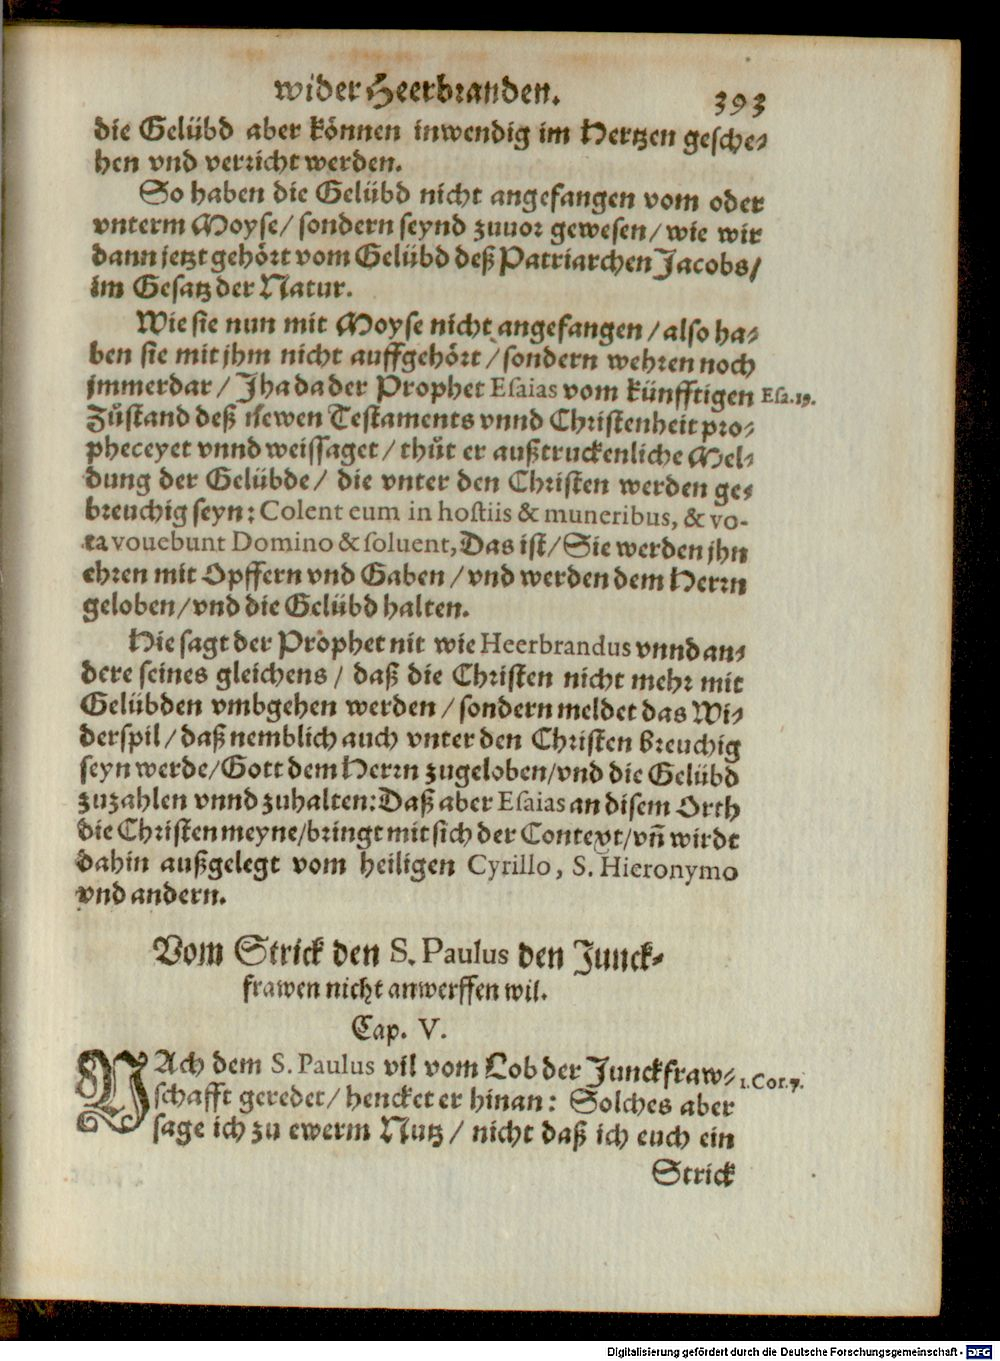 wider Heerbranden. 393
die Gelübd aber können inwendig im Hertzen gesche-
hen vnd verricht werden.
So haben die Gelübd nicht angefangen vom oder
vnterm Moyse/ sondern seynd zuuor gewesen/ wie wir
dann jetzt gehört vom Gelübd deß Patriarchen Jacobs/
im Gesatz der Natur.
Wie sie nun mit Moyse nicht angefangen/ also ha-
ben sie mit jhm nicht auffgehört/ sondern wehren noch
jmmerdar/ Jha da der Prophet Esaias vom künfftigen Esa. 19.
Zůstand deß Newen Testaments vnnd Christenheit pro-
pheceyet vnnd weissaget/ thůt er außtruckenliche Mel-
dung der Gelübde/ die vnter den Christen werden ge-
breuchig seyn: Colent eum in hostiis & muneribus, & vo-
ta vouebunt Domino & soluent, Das ist/ Sie werden jhn
ehren mit Opffern vnd Gaben/ vnd werden dem Herrn
geloben/ vnd die Gelübd halten.
Hie sagt der Prophet nit wie Heerbrandus vnnd an-
dere seines gleichens/ daß die Christen nicht mehr mit
Gelübden vmbgehen werden/ sondern meldet das Wi-
derspil/ daß nemblich auch vnter den Christen breuchig
seyn werde/ Gott dem Herrn zugeloben/ vnd die Gelübd
zuzahlen vnnd zuhalten: Daß aber Esaias an disem Orth
die Christen meyne/ bringt mit sich der Context/ vñ wirdt
dahin außgelegt vom heiligen Cyrillo, S. Hieronymo
vnd andern.
Vom Strick den S. Paulus den Junck-
frawen nicht anwerffen wil.
Cap. V.
NAch dem S. Paulus vil vom Lob der Junckfraw- 1. Cor. 7.
schafft geredet/ hencket er hinan: Solches aber
sage ich zu ewerm Nutz/ nicht daß ich euch ein
Strick
Digitalisierung gefördert durch die Deutsche Forschungsgemeinschaft - DFG